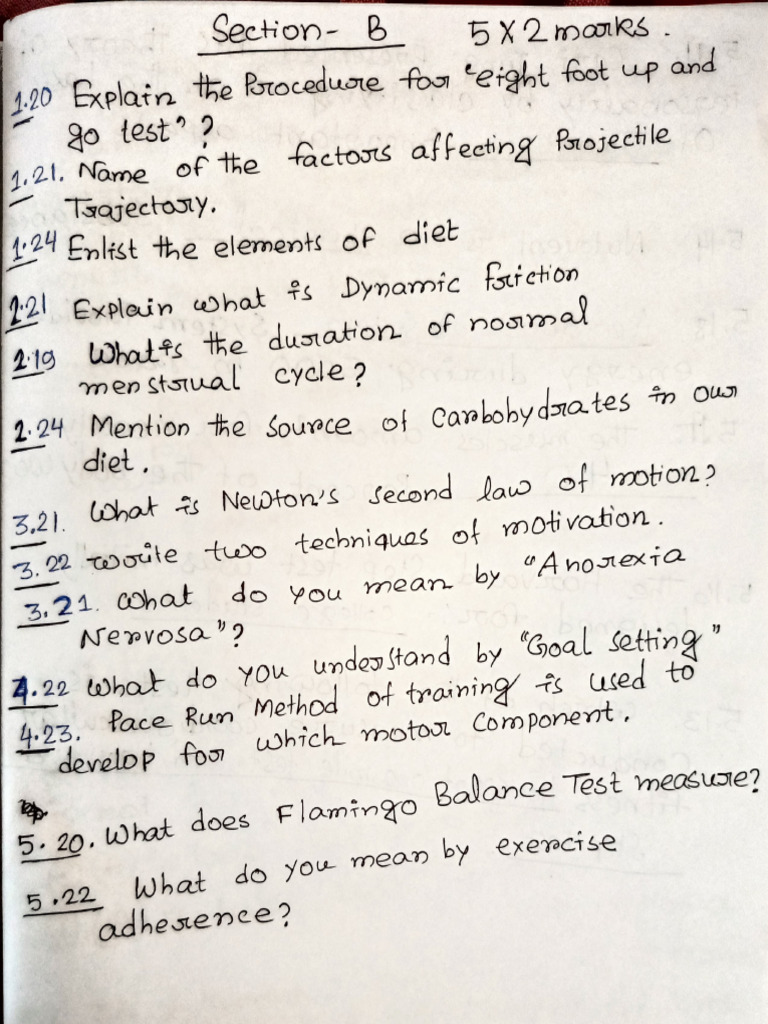 Section- B 5 X 2 marks.
1.20 Explain the Procedure for "eight foot up and
go test"?
1.21. Name of the factors affecting Projectile
Trajectory.
1.24 Enlist the elements of diet
2.21 Explain what is Dynamic friction
2.19 What is the duration of normal
menstrual cycle?
2.24 Mention the source of Carbohydrates in our
diet.
3.21. What is Newton's second law of motion?
3.22 write two techniques of motivation.
3.21. What do you mean by "Anorexia
Nervosa"?
4.22 What do you understand by "Goal setting"
4.23. Pace Run Method of training is used to
develop for which motor component.
5.20. What does Flamingo Balance Test measure?
5.22 What do you mean by exercise
adherence?